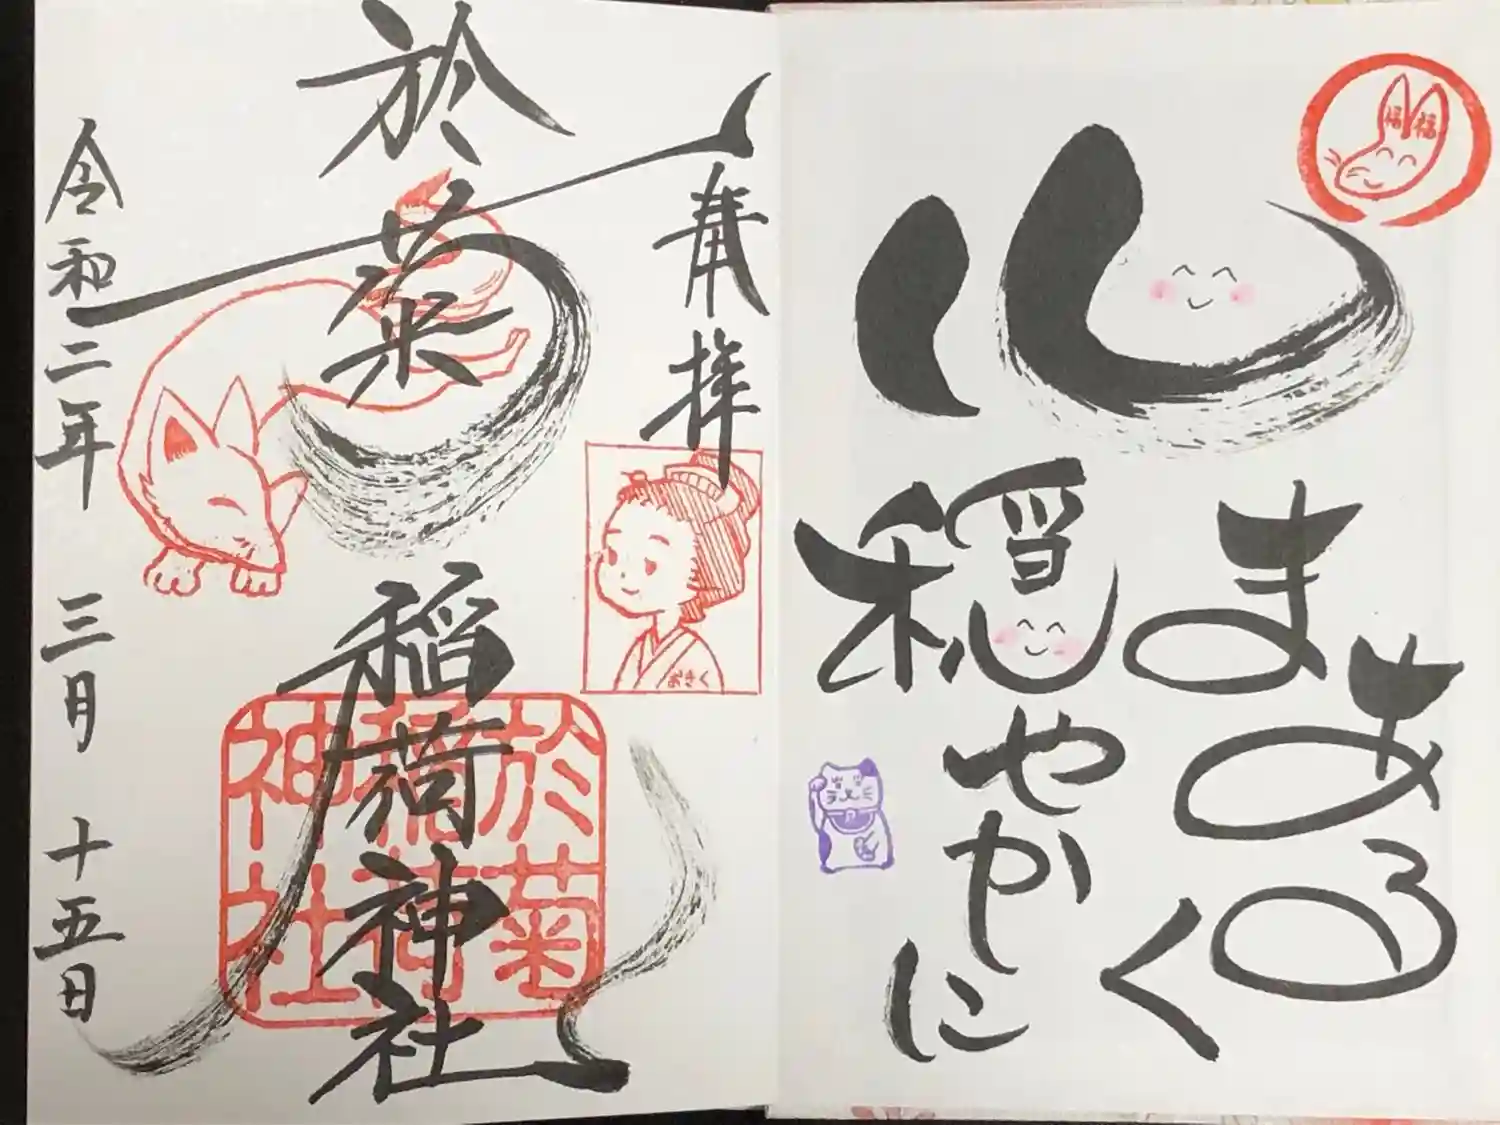 福福
心
まあるく
穏やかに
奉拝
おきく
於菊稲荷神社
於菊
稲荷
神社
令和二年三月十五日